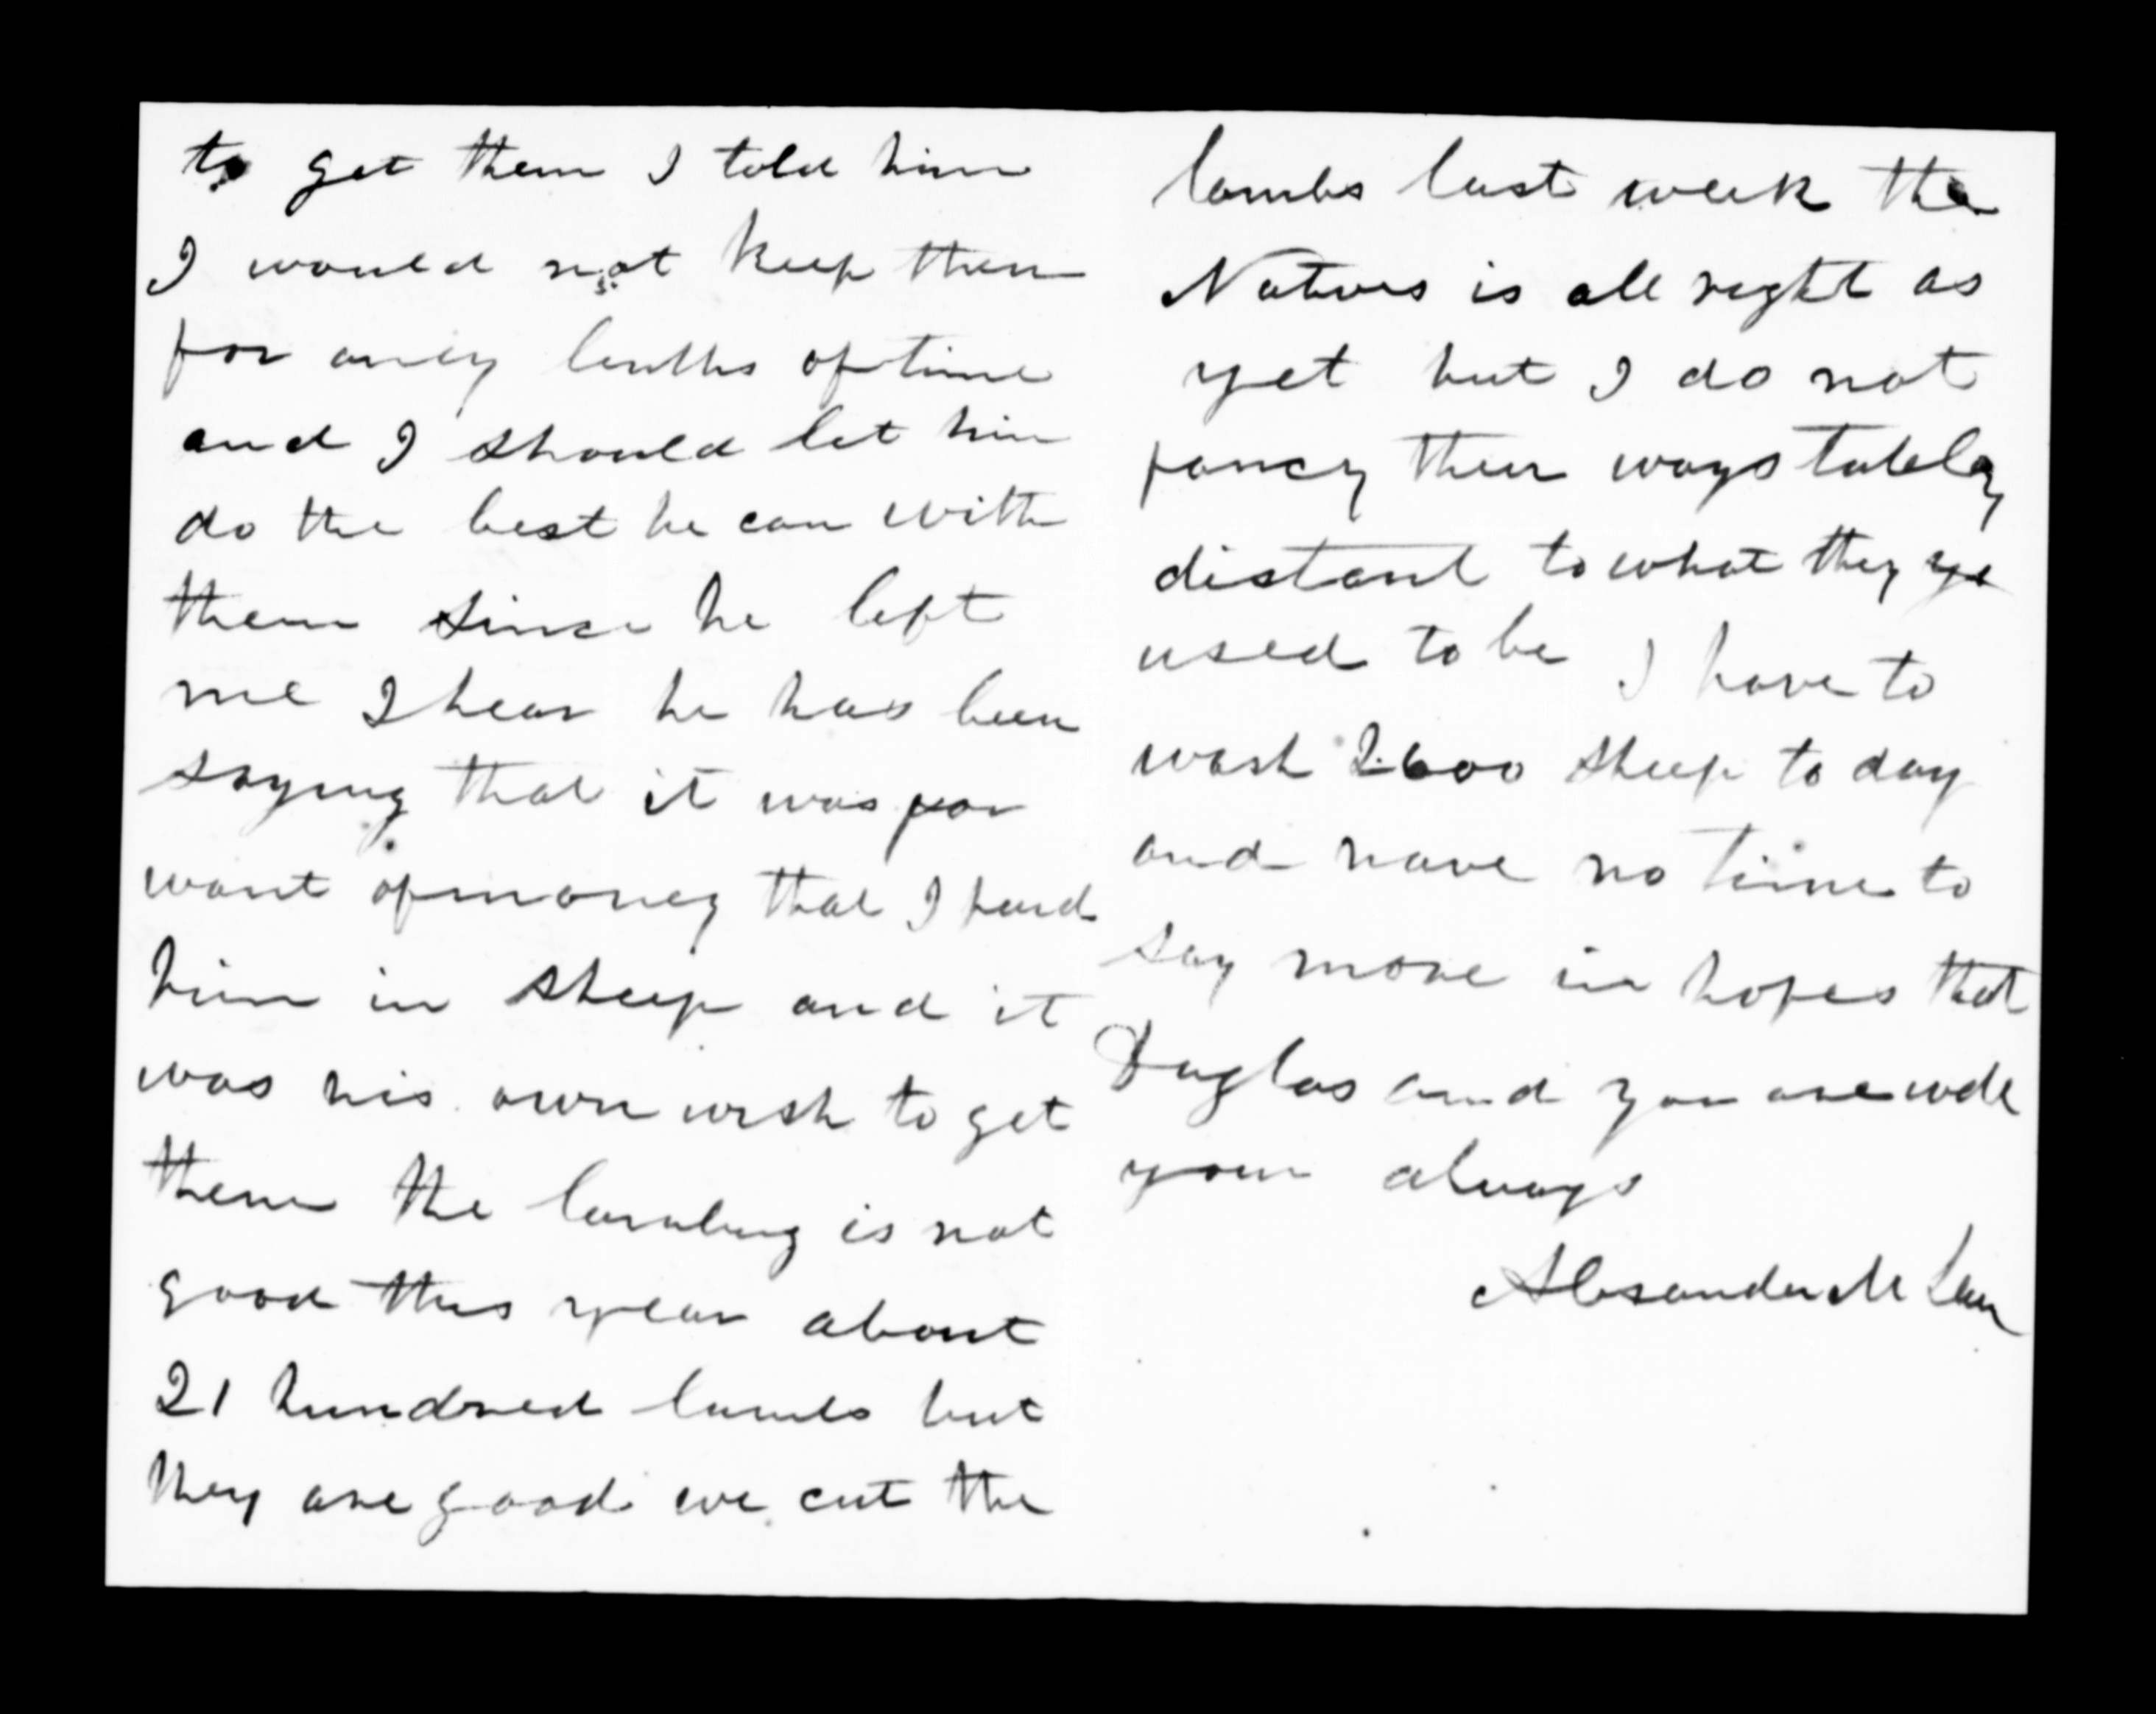 to get them I told him
I would not keep them
for aney lenths of time
and I should let him
do the best he can with
them since he left
me I hear he has been
saying that it was for
want of money that I paid
him in sheep and it
was his own wish to get
them the lambing is not
good this year about
21 hundred lambs but
they are good we cut the
lambs last week the
Natives is all right as
yet but I do not
fancy their ways
distant to what they
used to be I have to
wash 2600 sheep to day
and have no time to
say more in hopes that
Duglas and you are well
your always
Alexander McLean